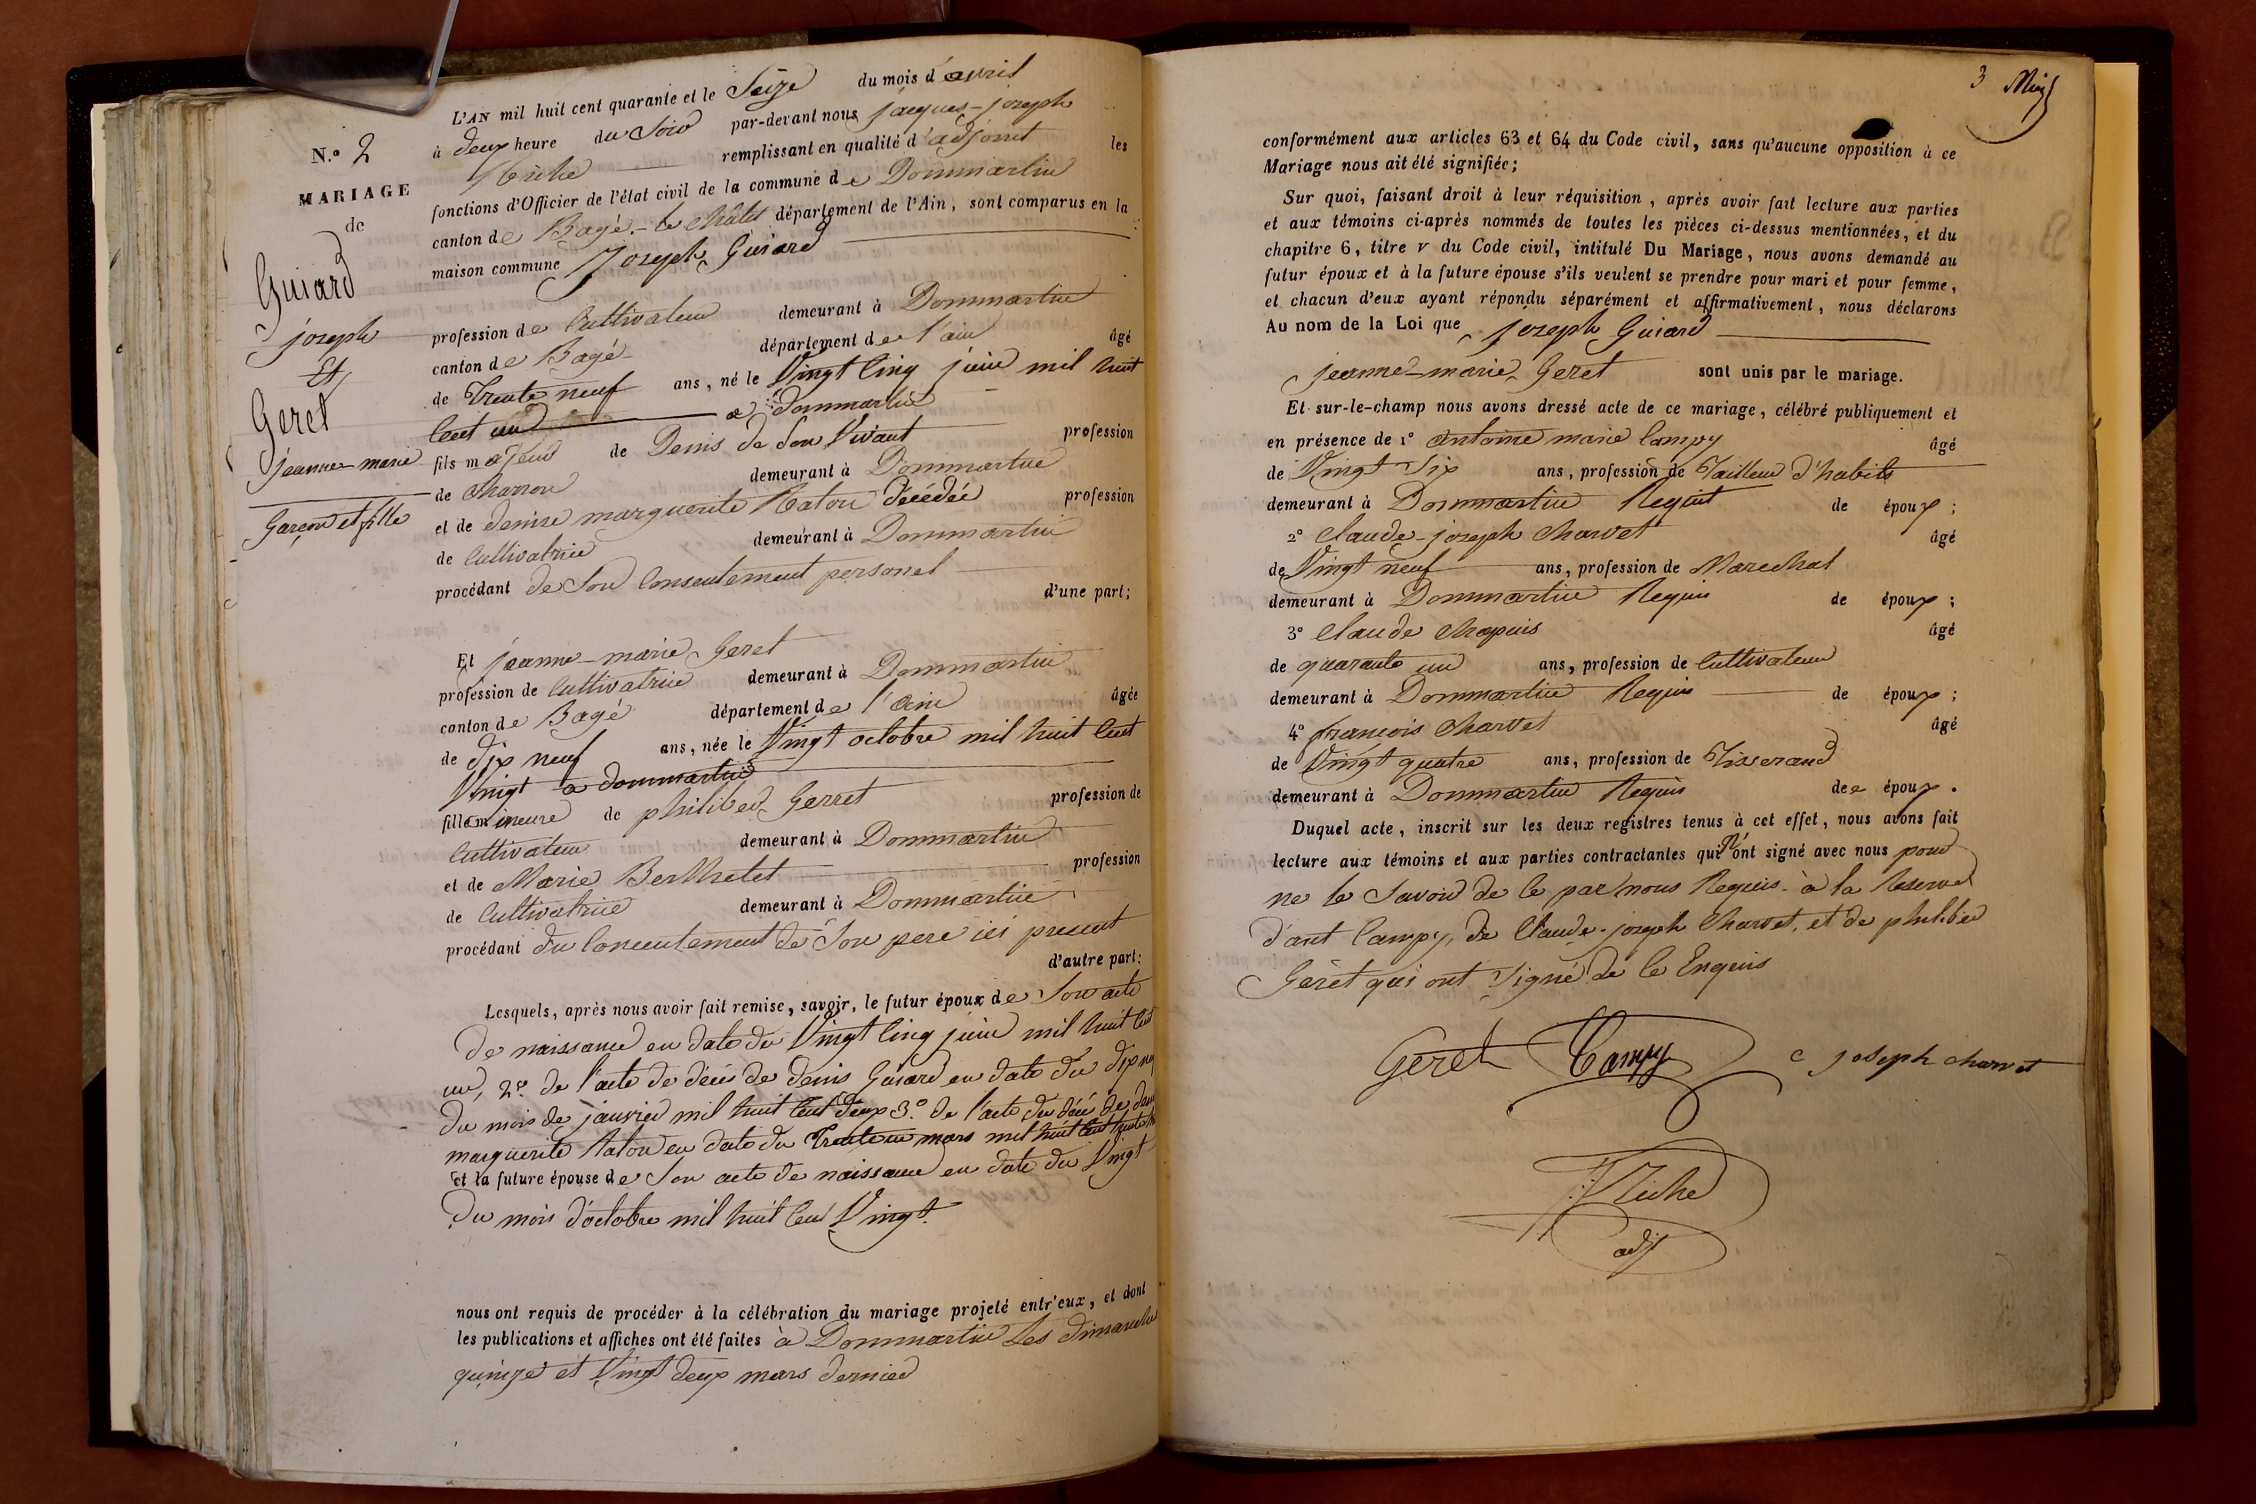 N.° 2
MARIAGE
de
Guiard
joseph
Et
Geret
jeanne-marie
Garçon et fille
L'AN mil huit cent quarante et le Seize du mois d'avril
à deux heure du Soir par-devant nous jacques-joseph
remplissant en qualité d'adjoint les
fonctions d'Officier de l'état civil de la commune de Dommartin
canton de Bagé-le châtel département de l'Ain, sont comparus en la
maison commune Joseph Guiard
profession de Cultivateur demeurant à Dommartin
canton de Bagé département de l'ain âgé
de Trente neuf ans, né le Vingt Cinq juin mil huit
Cent un a dommartin
fils majeur de Denis de Son Vivant profession
de Charron demeurant à Dommartin
et de denise marguerite Raton décédée profession
de Cultivatrice demeurant à Dommartin
procédant de Son Consentement personel
d'une part;
Et jeanne-marie Geret
profession de Cultivatrice demeurant à Dommartin
canton de Bagé département de l'Ain âgée
de dix neuf ans, née le Vingt octobre mil huit Cent
Vingt a dommartin
fille mineure de philibert Gerret profession de
Cultivateur demeurant à Dommartin
et de Marie Berthelet profession
de Cultivatrice demeurant à Dommartin
procédant du Consentement de Son pere ici present
d'autre part:
Lesquels, après nous avoir fait remise, savoir, le futur époux de Son acte
De naissance en date du Vingt Cinq juin mil huit Cent
un, 2° de l'acte de décé de denis Guiard en date du dix neuf
du mois de janvier mil huit Cent deux 3° de l'acte du décé de
marguerite Raton en date du Trente un mars mil huit Cent
et la future épouse de Son acte de naissance en date du Vingt
Du mois d'octobre mil huit Cent Vingt.
nous ont requis de procéder à la célébration du mariage projeté entr'eux, et dont
les publications et affiches ont été faites à Dommartin Les dimanche
quinze et Vingt deux mars dernier
3
conformément aux articles 63 et 64 du Code civil, sans qu'aucune opposition à ce
Mariage nous ait été signifiée;
Sur quoi, faisant droit à leur réquisition, après avoir fait lecture aux parties
et aux témoins ci-après nommés de toutes les pièces ci-dessus mentionnées, et du
chapitre 6, titre v du Code civil, intitulé Du Mariage, nous avons demandé au
futur époux et à la future épouse s'ils veulent se prendre pour mari et pour femme,
et chacun d'eux ayant répondu séparément et affirmativement, nous déclarons
Au nom de la Loi que joseph Guiard
jeanne-marie Geret sont unis par le mariage.
Et sur-le-champ nous avons dressé acte de ce mariage, célébré publiquement et
en présence de 1° antoine marie Campy âgé
de Vingt Six ans, profession de Tailleur d'habits
demeurant à Dommartin Requit de époux;
2° Claude-joseph Charvet âgé
de Vingt neuf ans, profession de Marechal
demeurant à Dommartin Requis de époux;
3° Claude Chapuis âgé
de quarante un ans, profession de Cultivateur
demeurant à Dommartin Requis de époux;
4° françois Charvet âgé
de Vingt quatre ans, profession de Tisserand
demeurant à Dommartin Requis de époux.
Duquel acte, inscrit sur les deux registres tenus à cet effet, nous avons fait
lecture aux témoins et aux parties contractantes qui n'ont signé avec nous pour
ne le Savoir de Ce par nous Requis à la Reserve
d'ant Campy, de Claude-joseph Charvet, et de philiber
Géret qui ont Signé de Ce Enquis
Geret Campy C joseph charvet
adj